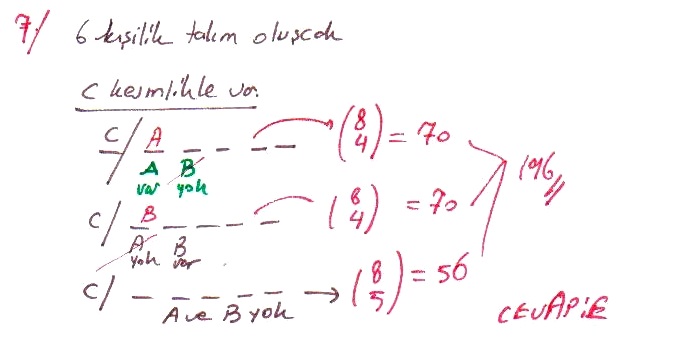 7/ 6 kişilik takım oluşcak
C kesinlikle var.
C/ A _ _ _ _ → (8 4) = 70
A var B yok
C/ B _ _ _ _ (8 4) = 70 196
A yok B var
C/ _ _ _ _ _ → (8 5) = 56
A ve B yok
CEVAP: E